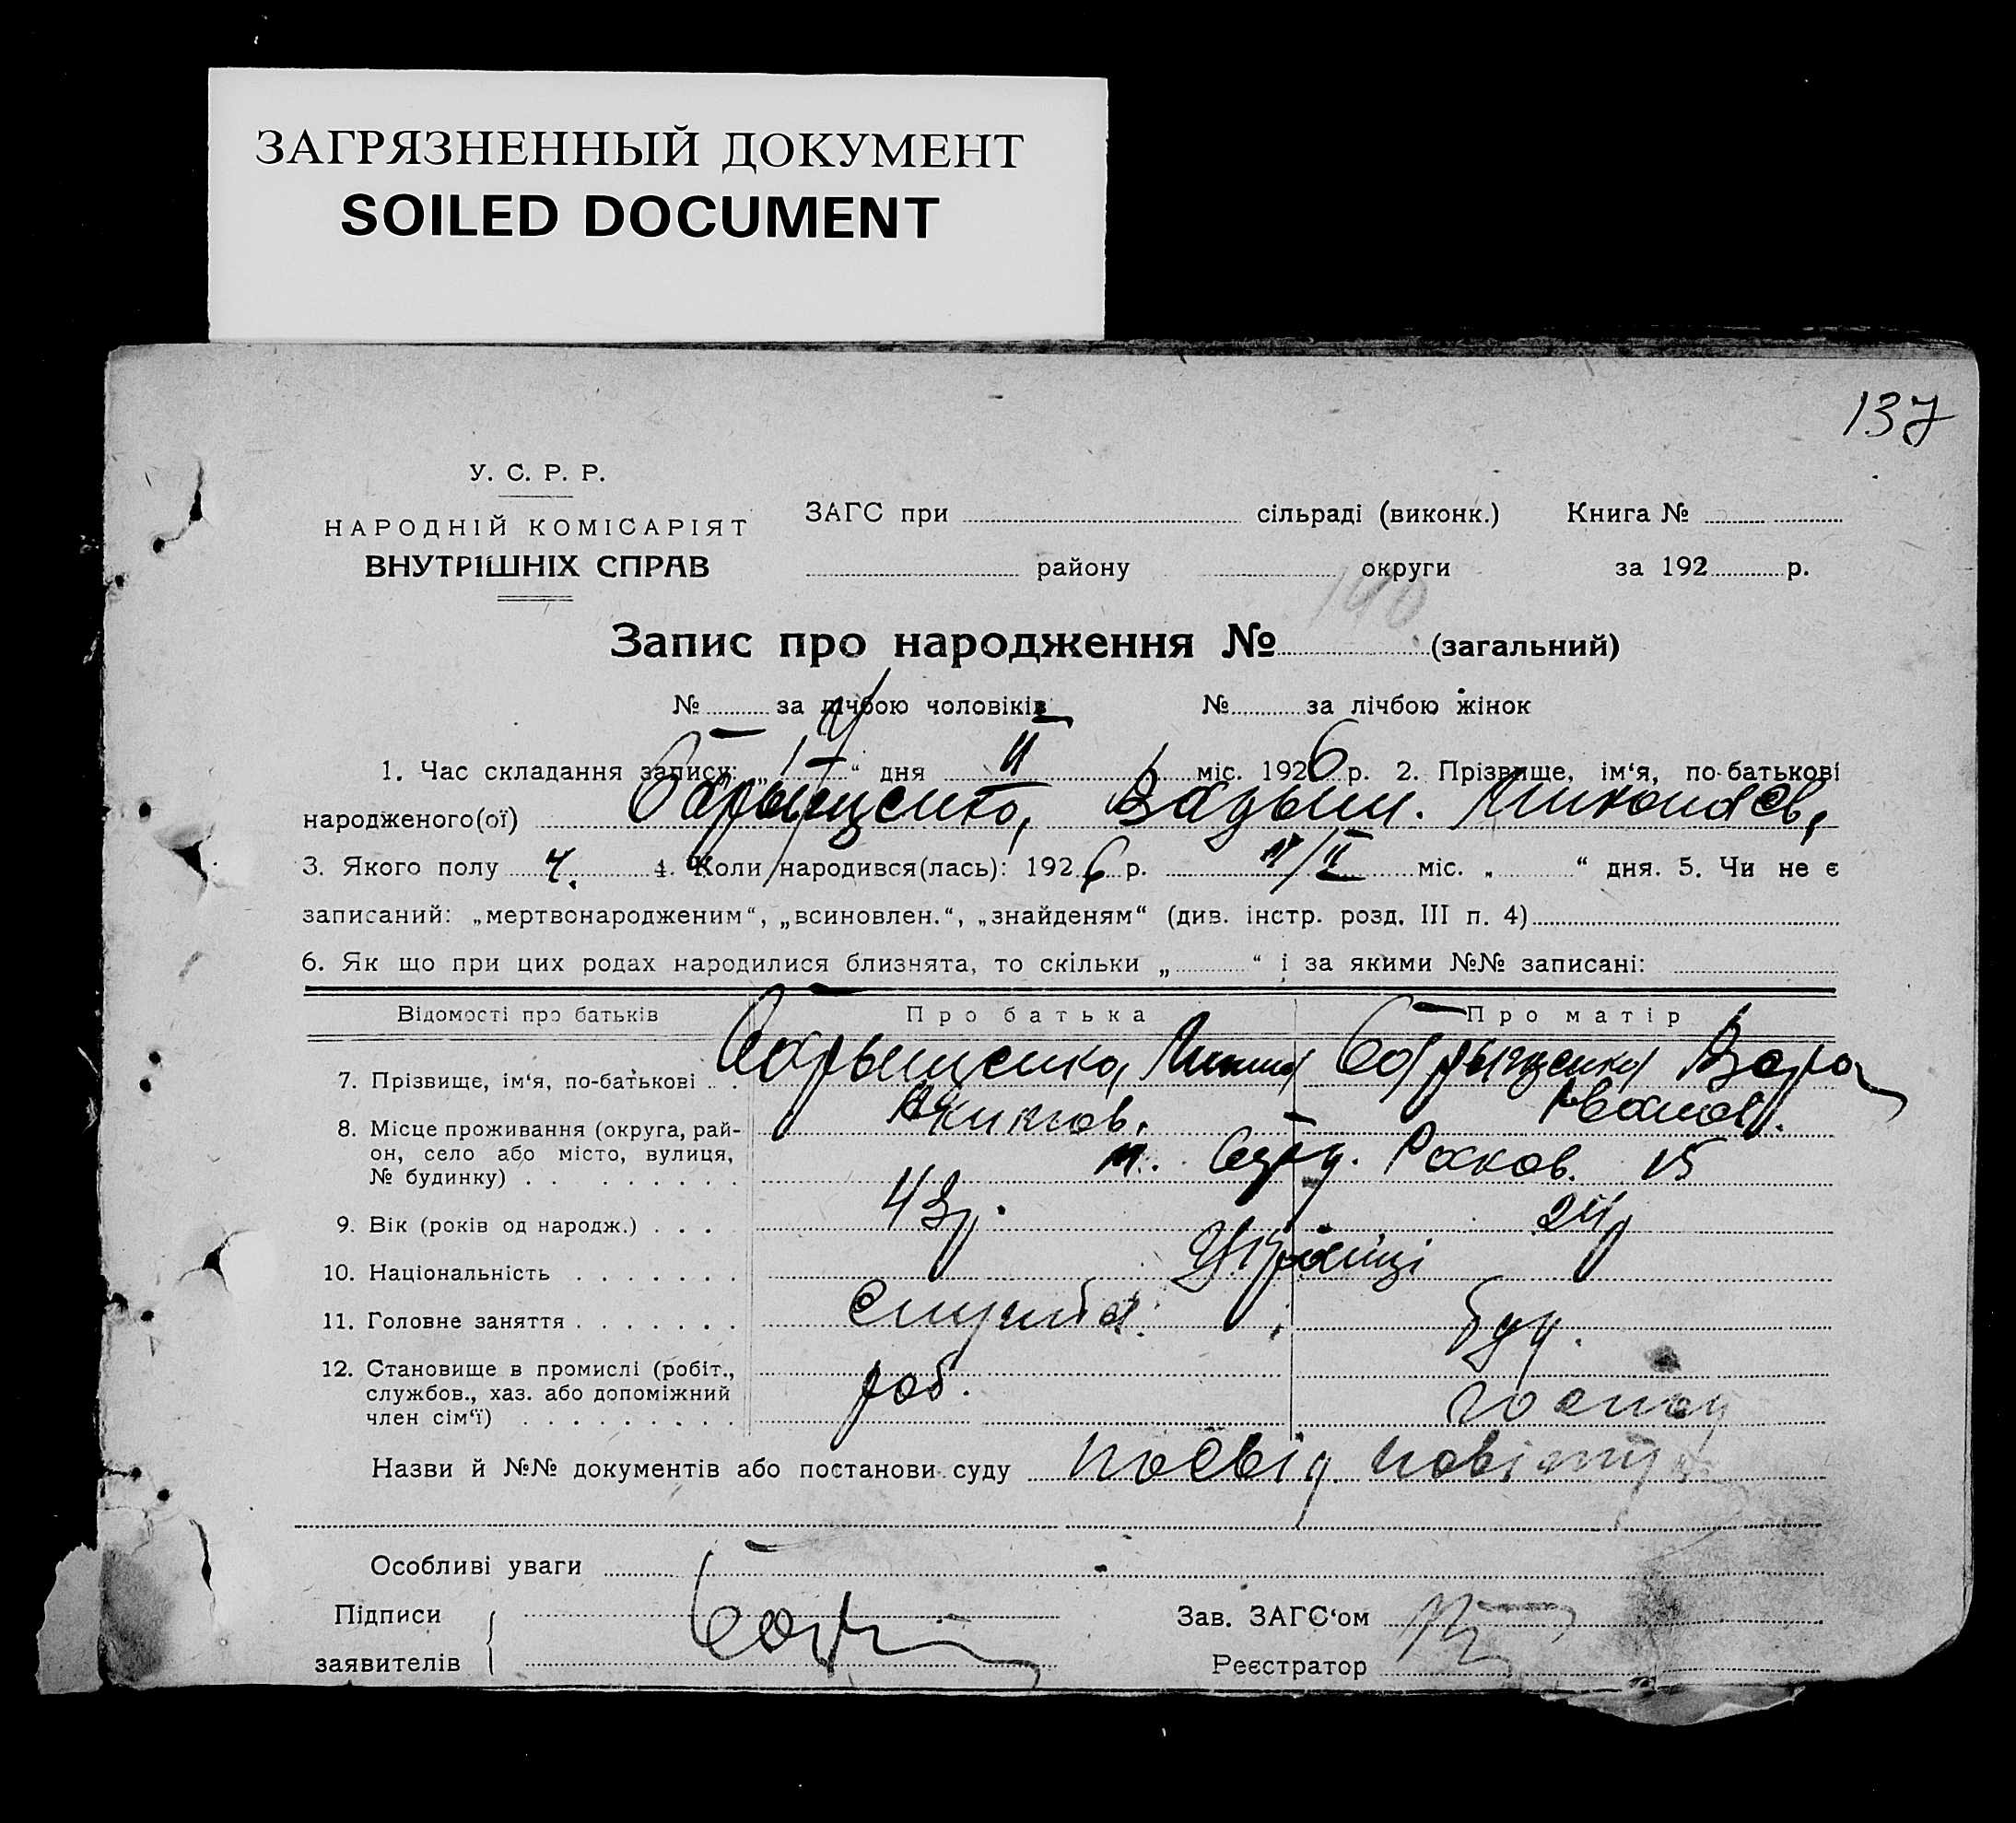 ЗАГРЯЗНЕННЫЙ ДОКУМЕНТ
SOILED DOCUMENT
137
У. С. Р. Р.
НАРОДНІЙ КОМІСАРІЯТ
ВНУТРІШНІХ СПРАВ
ЗАГС при сільраді (виконк.) Книга №
району округи за 192 р.
140
Запис про народження № (загальний)
№ за лічбою чоловіків № за лічбою жінок
1. Час складання запису: „ “ дня II міс. 1926 р. 2. Прізвище, ім‘я, по-батькові
народженого(ої) Барыщенко, Вадым. Миколаєв,
3. Якого полу ч. 4. Коли народився(лась): 1926 р. /II міс. „ “ дня. 5. Чи не є
записаний: „мертвонародженим“, „всиновлен.“, „знайденям“ (див. інстр. розд. III п. 4)
6. Як що при цих родах народилися близнята, то скільки „ “ і за якими №№ записані:
Відомості про батьків Про батька Про матір
7. Прізвище, ім‘я, по-батькові Барыщенко, Барыщенко Вера
Иванов.
8. Місце проживання (округа, рай-
он, село або місто, вулиця,
№ будинку) 15
9. Вік (років од народж.) 43 р. 24 р
10. Національність Українці
11. Головне заняття служба.
12. Становище в промислі (робіт.,
службов., хаз. або допоміжний
член сім‘ї) роб.
Назви й №№ документів або постанови суду посвід.
Особливі уваги
Підписи
заявителів
Зав. ЗАГС‘ом
Реєстратор